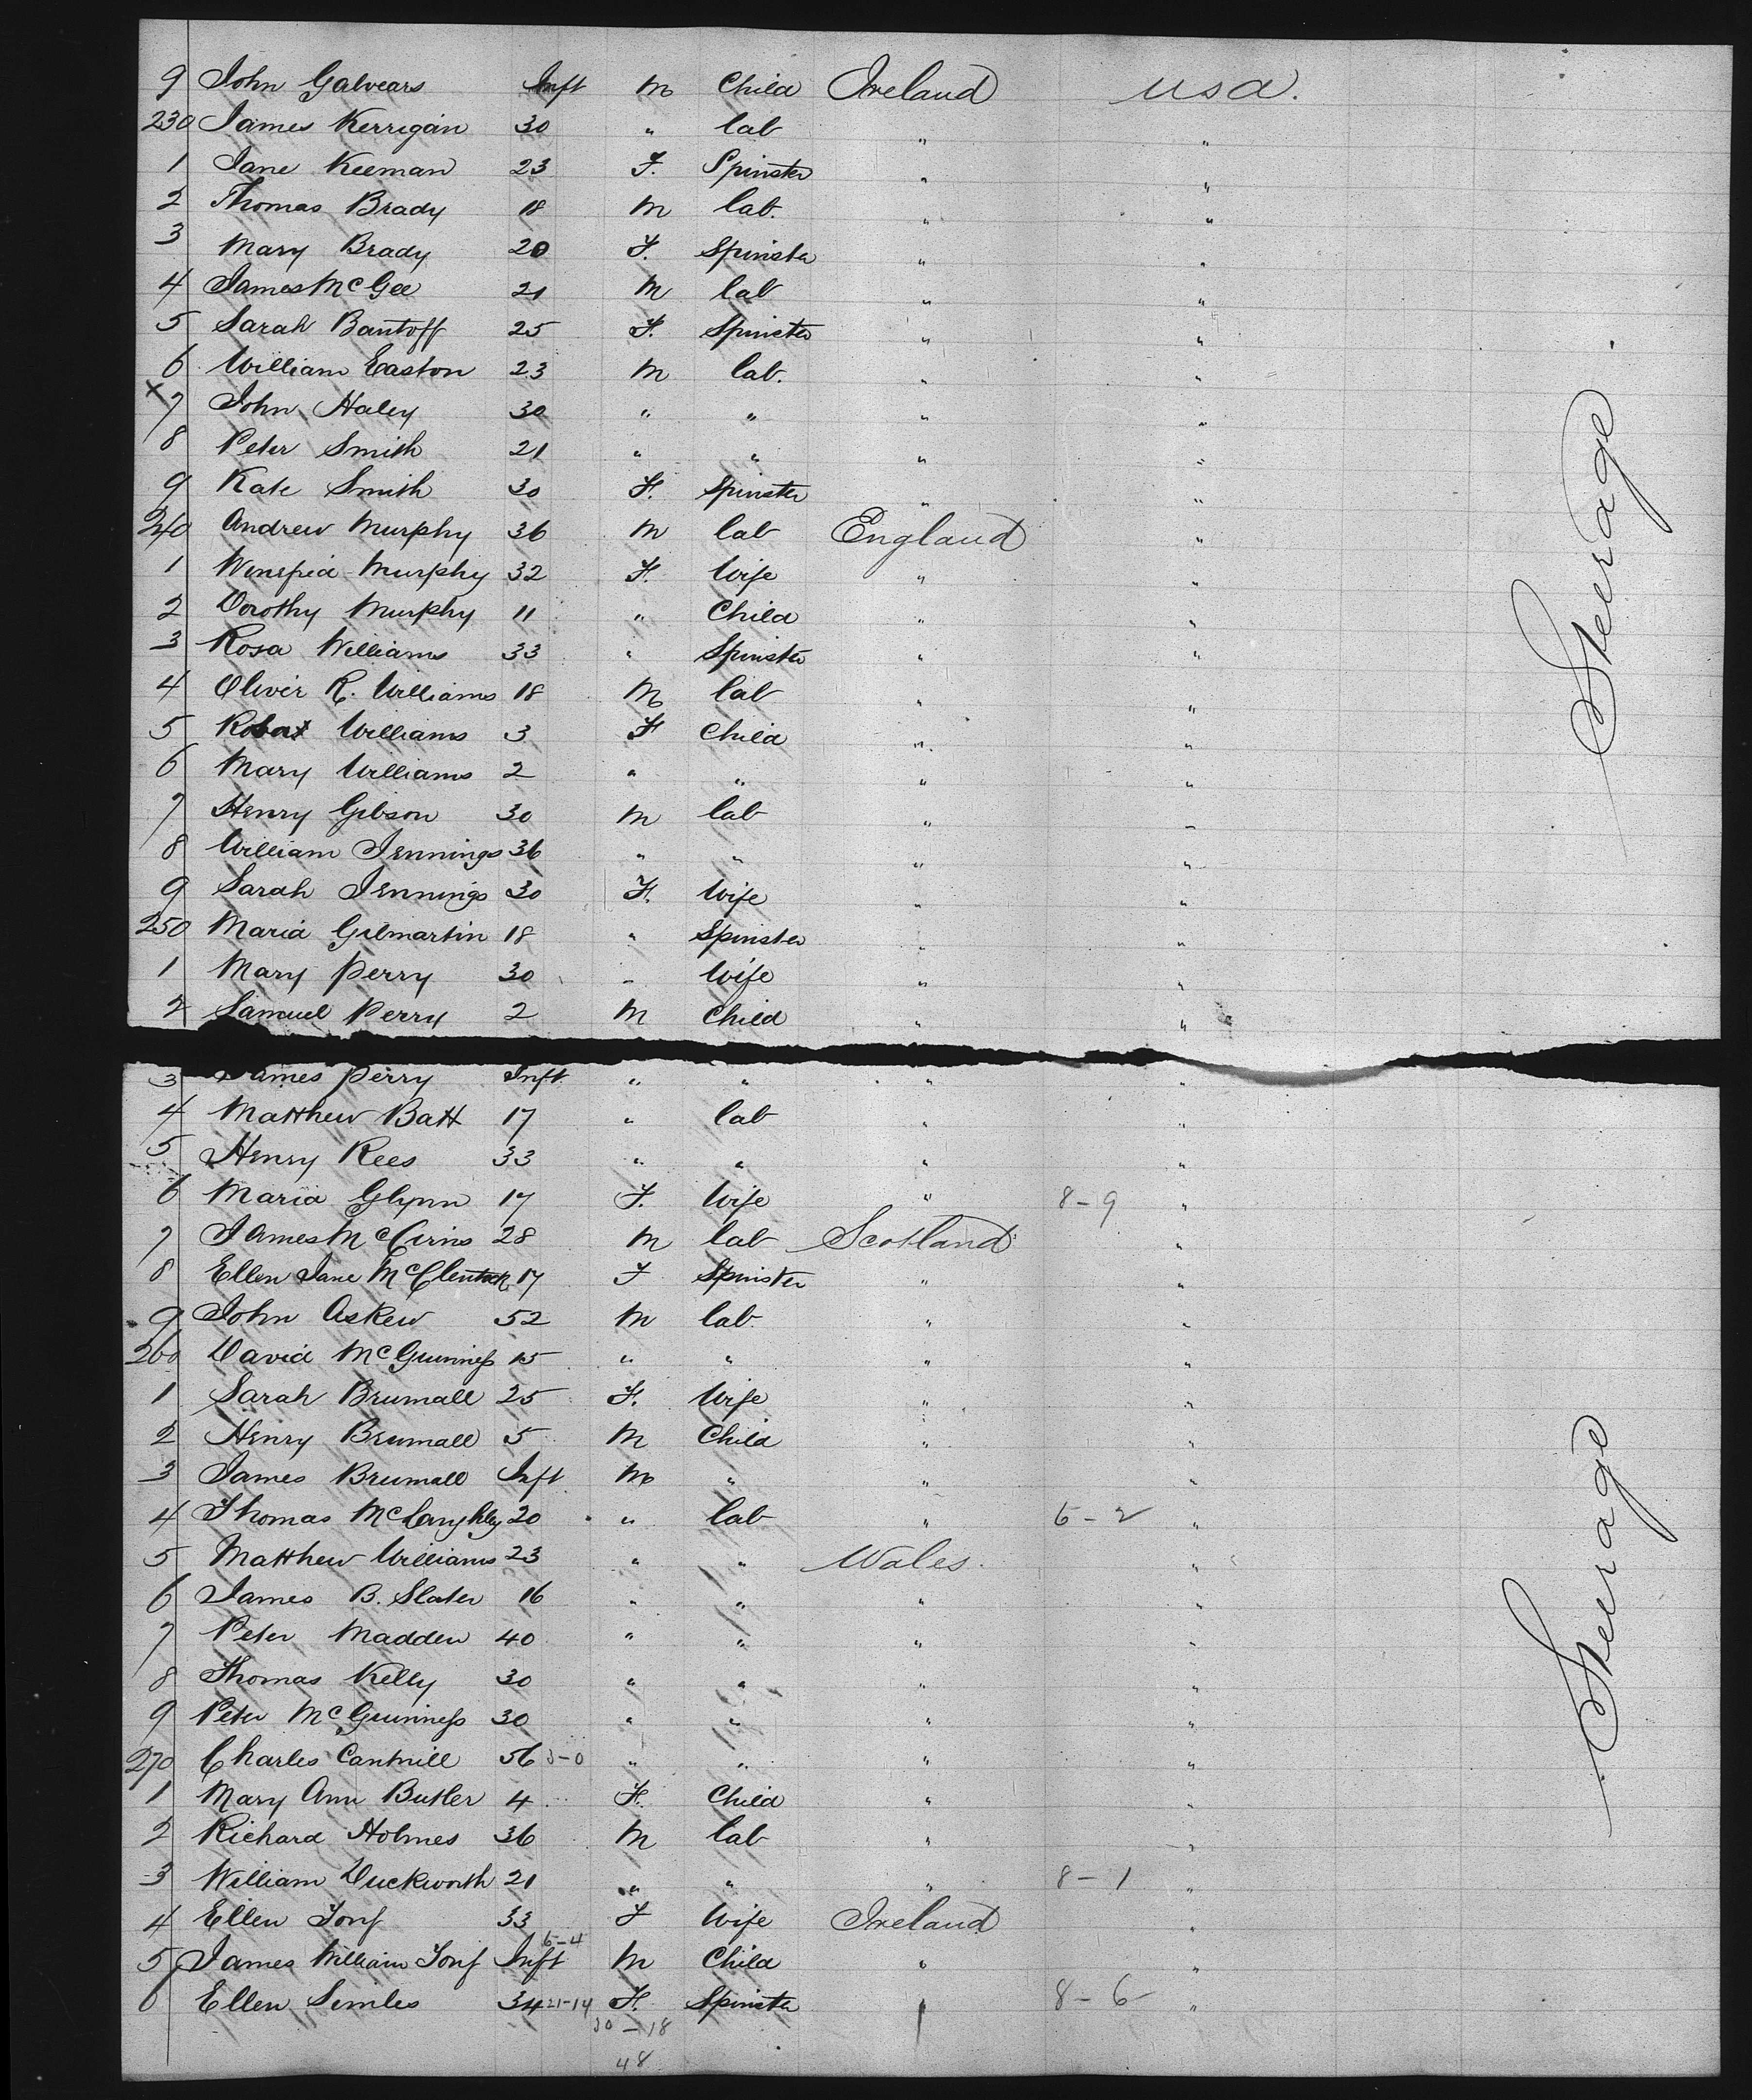 9 John Galvears Inft M Child Ireland USA.
230 James Kerrigan 30 " lab " "
1 Jane Keeman 23 F. Spinster " "
2 Thomas Brady 18 M lab. " "
3 Mary Brady 20 F. Spinster " "
4 James McGee 21 M lab " "
5 Sarah Bantoff 25 F. Spinster " "
6 William Easton 23 M lab. " "
x 7 John Haley 30 " " " "
8 Peter Smith 21 " " " "
9 Kate Smith 30 F. Spinster " "
240 Andrew Murphy 36 M lab England "
1 Winefrid Murphy 32 F. Wife " "
2 Dorothy Murphy 11 " Child " "
3 Rosa Williams 33 " Spinster " "
4 Oliver R. Williams 18 M lab " "
5 Robert Williams 3 F Child " "
6 Mary Williams 2 " " " "
7 Henry Gibson 30 M lab " "
8 William Jennings 36 " " " "
9 Sarah Jennings 30 F. Wife " "
250 Maria Gilmartin 18 " Spinster " "
1 Mary Perry 30 " Wife " "
2 Samuel Perry 2 M Child " "
Steerage
3 James Perry Inft " " " "
4 Matthew Batt 17 " lab " "
5 Henry Rees 33 " " " "
6 Maria Glynn 17 F. Wife " 8-9 "
7 James McCirns 28 M lab Scotland "
8 Ellen Jane 17 F Spinster " "
9 John Askew 52 M lab " "
260 David McGuinness 15 " " " "
1 Sarah Brumall 25 F. Wife " "
2 Henry Brumall 5 M Child " "
3 James Brumall Inft M " " "
4 Thomas 20 " lab " 6-2 "
5 Matthew Williams 23 " " Wales. "
6 James B. Slater 16 " " " "
7 Peter Madden 40 " " " "
8 Thomas Kelly 30 " " " "
9 Peter McGuinness 30 " " " "
270 Charles Cantrill 56 5-0 " " " "
1 Mary Ann Butler 4 F. Child " "
2 Richard Holmes 36 M lab " "
3 William Duckworth 21 " " " 8-1 "
4 Ellen 33 F Wife Ireland "
6-4
5 James William Inft M Child " "
6 Ellen Similes 34 21-14 F. Spinster " 8-6 "
30-18
48
Steerage